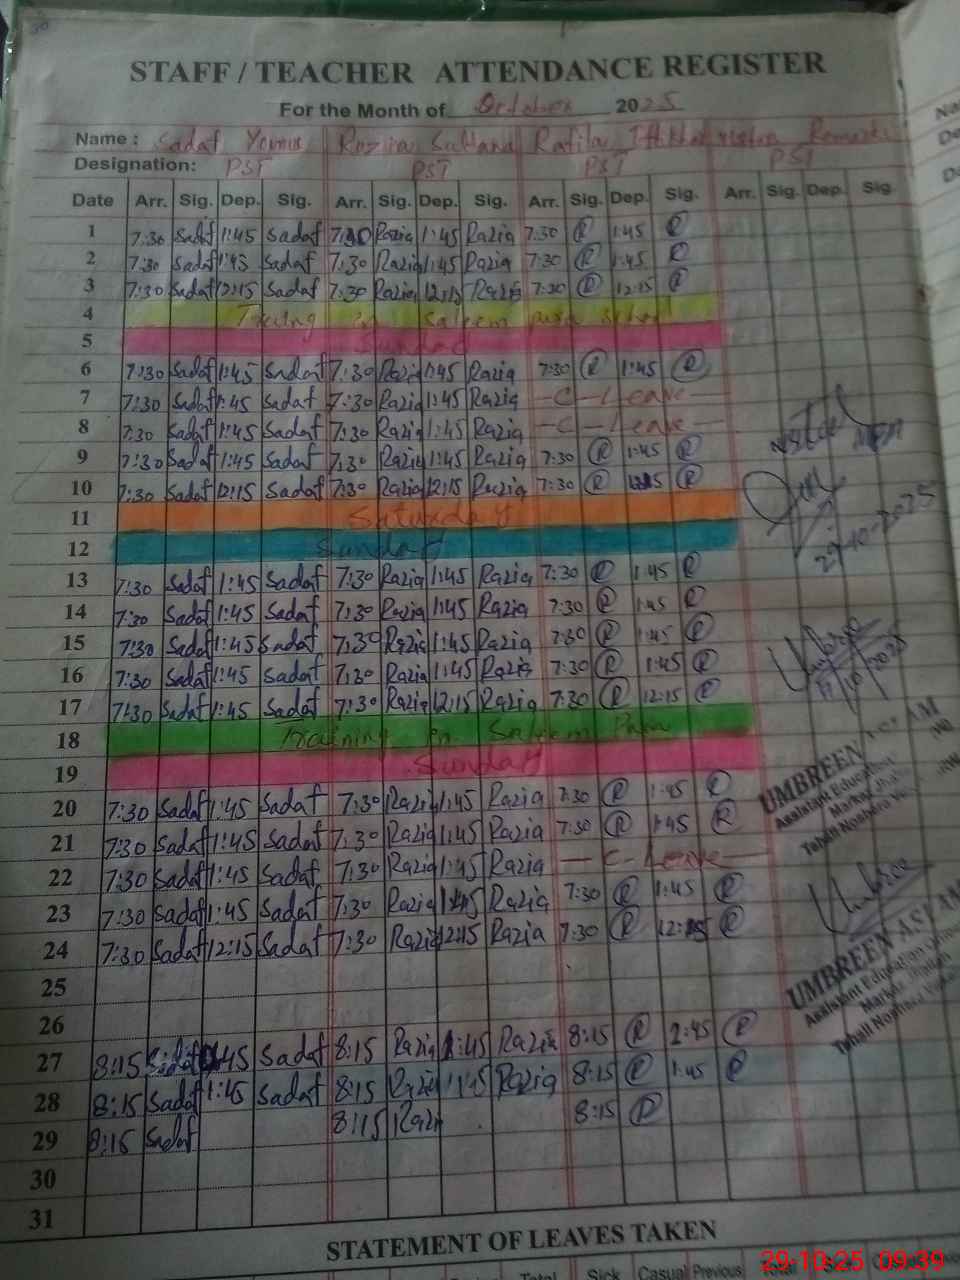 STAFF / TEACHER ATTENDANCE REGISTER
For the Month of October 2025
Name : Sadaf Razia Sultana Rafila
Designation: PST PST PST PST
Date Arr. Sig. Dep. Sig. Arr. Sig. Dep. Sig. Arr. Sig. Dep. Sig. Arr. Sig. Dep. Sig.
1 7:30 Sadaf 1:45 Sadaf 7:30 Razia 1:45 Razia 7:30 R 1:45 R
2 7:30 Sadaf 1:45 Sadaf 7:30 Razia 1:45 Razia 7:30 R 1:45 R
3 7:30 Sadaf 12:15 Sadaf 7:30 Razia 12:15 Razia 7:30 R 12:15 R
4 in Saleem
5 Sunday
6 7:30 Sadaf 1:45 Sadaf 7:30 Razia 1:45 Razia 7:30 R 1:45 R
7 7:30 Sadaf 1:45 Sadaf 7:30 Razia 1:45 Razia — C — Leave —
8 7:30 Sadaf 1:45 Sadaf 7:30 Razia 1:45 Razia — C — Leave —
9 7:30 Sadaf 1:45 Sadaf 7:30 Razia 1:45 Razia 7:30 R 1:45 R
10 7:30 Sadaf 12:15 Sadaf 7:30 Razia 12:15 Razia 7:30 R 12:15 R
11 Saturday
12 Sunday
29-10-2025
13 7:30 Sadaf 1:45 Sadaf 7:30 Razia 1:45 Razia 7:30 R 1:45 R
14 7:30 Sadaf 1:45 Sadaf 7:30 Razia 1:45 Razia 7:30 R 1:45 R
15 7:30 Sadaf 1:45 Sadaf 7:30 Razia 1:45 Razia 7:30 R 1:45 R
16 7:30 Sadaf 1:45 Sadaf 7:30 Razia 1:45 Razia 7:30 R 1:45 R
17 7:30 Sadaf 1:45 Sadaf 7:30 Razia 12:15 Razia 7:30 R 12:15 R
18 Training in Saleem
19 Sunday
UMBREEN ASLAM
Assistant Education
Markaz
Tehsil Noshera
20 7:30 Sadaf 1:45 Sadaf 7:30 Razia 1:45 Razia 7:30 R 1:45 R
21 7:30 Sadaf 1:45 Sadaf 7:30 Razia 1:45 Razia 7:30 R 1:45 R
22 7:30 Sadaf 1:45 Sadaf 7:30 Razia 1:45 Razia — C — Leave —
23 7:30 Sadaf 1:45 Sadaf 7:30 Razia 1:45 Razia 7:30 R 1:45 R
24 7:30 Sadaf 12:15 Sadaf 7:30 Razia 12:15 Razia 7:30 R 12:15 R
25
26
UMBREEN ASLAM
Assistant Education Officer
Markaz
Tehsil Noshera
27 8:15 Sadaf 1:45 Sadaf 8:15 Razia 1:45 Razia 8:15 R 2:45 R
28 8:15 Sadaf 1:45 Sadaf 8:15 Razia 1:45 Razia 8:15 R 1:45 R
29 8:15 Sadaf 8:15 Razia 8:15 R
30
31
STATEMENT OF LEAVES TAKEN
Total Sick Casual Previous Total Sick
29-10-25 09:39